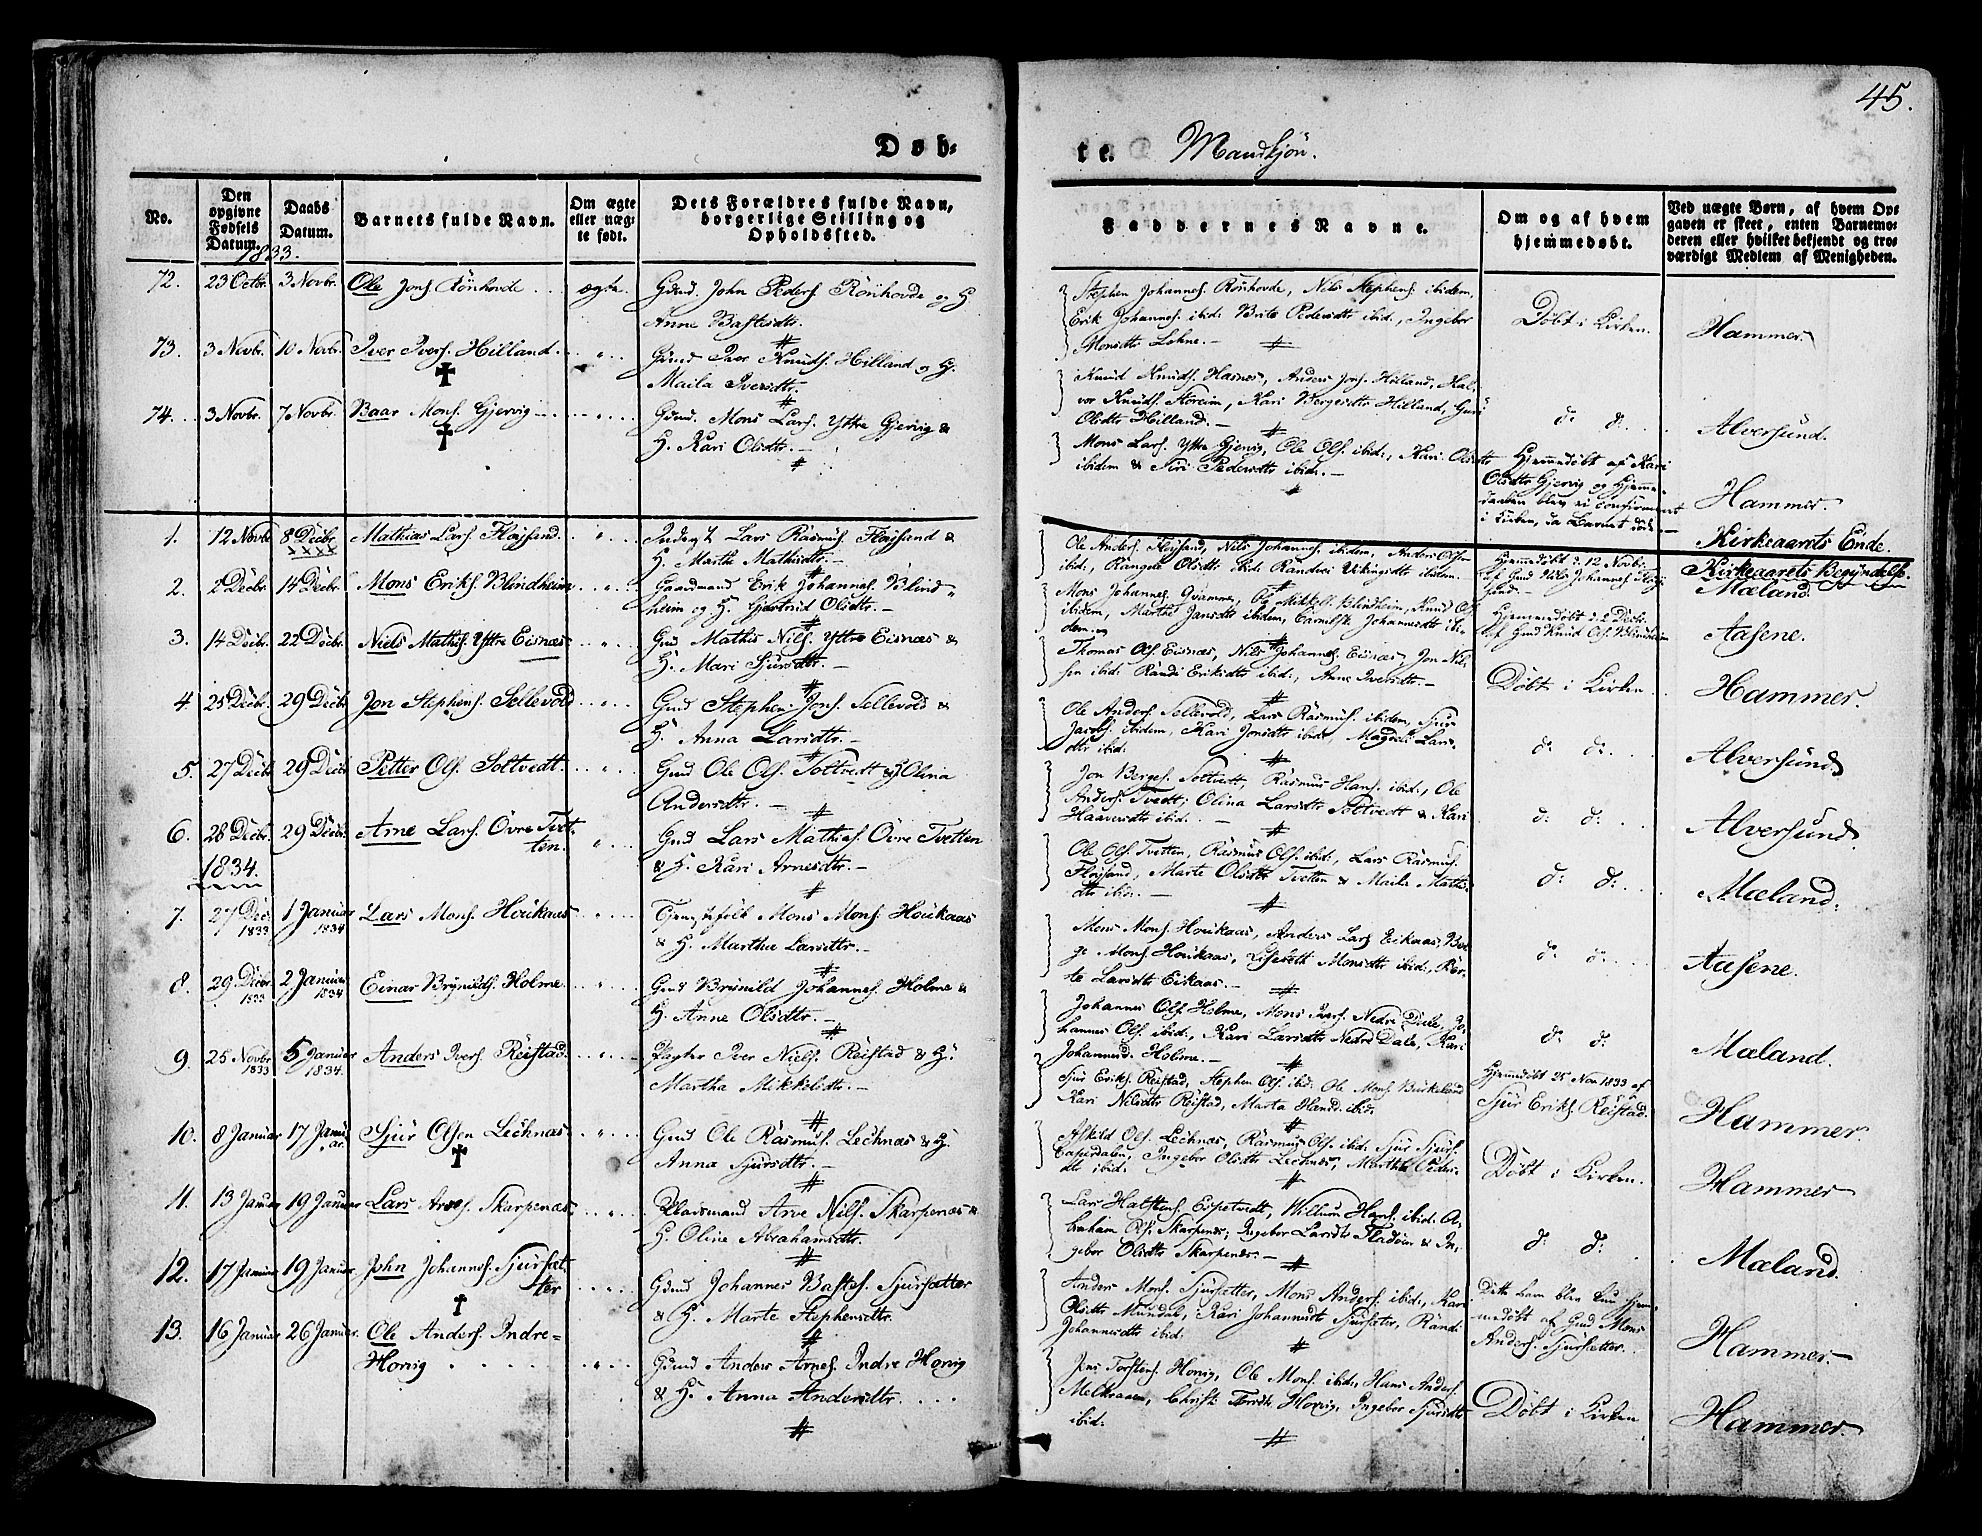 45.
Døb-
te. Mandkjön.
No.
Den opgivne Fødsels Datum.
Daabs Datum.
Barnets fulde Navn.
Om ægte eller uægte født.
Dets Forældres fulde Navn, borgerlige Stilling og Opholdssted.
Faddernes Navne.
Om og af hvem hjemmedøbt.
Ved uægte Børn, af hvem Opgaven er skeet, enten Barnemoderen eller hvilket bekjendt og troværdigt Medlem af Menigheden.
1833.
72. 23 Octbr. 3 Novbr. Ole Jons. Rönhovde ægte Gdmd. John Peders. Rönhovde og H.
Anne Bastesdtr.
Stephen Johannes. Rönhovde, Nils Stephens. ibidem,
Erik Johannes. ibid: Brite Pedersdtr ibid:, Ingebor
Monsdtr Lohne.
Döbt i Kirken.
Hammer.
73. 3 Novbr. 10 Novbr. Iver Ivers. Hilland. " Gdmd Iver Knuds. Hilland og H.
Maila Iversdtr.
Knud Knuds. Hasnes, Anders Jons. Hilland, Hal-
vor Knuds. Storeim, Kari Bergesdtr Hilland, Guri
Olsdtr Hilland.
d: d:
Alversund.
74. 3 Novbr. 7 Novbr. Baar Mons. Gjervig " Gdmd. Mons Lars. Yttre Gjervig &
H. Kari Olsdtr.
Mons Lars. Yttre Gjervig, Ole Ols. ibid:, Kari Olsdtr
ibidem & Siri Pedersdtr ibid:
Hjemmedöbt af Kari
Olsdtr Gjervig og Hjemme-
daaben blev ei confirmeret
i Kirken, da Barnet döde
Hammer.
Kirkeaarets Ende.
Kirkeaarets Begyndelse.
1. 12 Novbr 8 Decbr. Mathias Lars. Floisand. " Inderst Lars Rasmus. Floisand &
H. Marth Mathisdtr.
Ole Anders. Floisand, Nils Johannes. ibidem, Anders Olsen
ibid:, Rangele Olsdtr ibid: Randvei Vikingsdtr ibidem.
Hjemmedöbt d. 12 Novbr.
af Gmd Nils Johannes. Floi-
sand.
Mæland.
2. 2 Decbr. 14 Decbr. Mons Eriks. Blindheim " Gaardmand Erik Johannes. Blind-
heim og H. Gjertrud Olsdtr.
Mons Johannes. Qvamme, Ole Mikkels. Blindheim, Knud Ols.
ibidem, Marthe Jansdtr ibidem, Johannesdtr ibi-
dem.
Hjemmedöbt d. 2 Decbr.
af Gmd Knud Ols. Blindheim
Aasene.
3. 14 Decbr. 22 Decbr. Niels Mathis. Yttre Eisnæs. " Gmd Mathis Nils. Yttre Eisnæs &
H. Mari Sjursdtr.
Thomas Ols. Eisnæs, Nils Johannes. Eisnæs, Jon Nil-
sen ibid: Randi Eriksdtr ibid:, Anne Iversdtr.
Döbt i Kirken.
Hammer.
4. 25 Decbr. 29 Decbr. Jon Stephens. Sellevold " Gmd Stephen Jons. Sellevold &
H. Anna Larsdtr.
Ole Anders. Sellevold, Lars Rasmus. ibidem, Sjur
Jacobs. ibidem, Kari Jonsdtr ibid:, Magdeli Lars-
dtr ibid:
d: d:
Alversund
5. 27 Decbr 29 Decbr Petter Ols. Toltvedt. " Gmd Ole Ols. Toltvedt & H. Olina
Andersdtr.
Jon Berges. Toltvedt, Rasmus Hans. ibid:, Ole
Anders. Tvedt, Olina Larsdtr Toltvedt & Kari
Haaversdtr ibid:
d: d:
Alversund.
6. 28 Decbr. 29 Decbr. Arne Lars. Övre Tvet-
ten. " Gmd Lars Mathias. Övre Tvetten
& H. Kari Arnesdtr.
Ole Ols. Tvetten, Rasmus Ols. ibid:, Lars Rasmus.
Floisand, Marte Olsdtr Tvetten & Maila Mathis-
dtr ibid:
d: d:
Mæland.
1834.
7. 27 Dec. 1833 1 Januar 1834 Lars Mons. Houkaas " Tjenestefolk Mons Mons. Houkaas
& H. Martha Larsdtr.
Mons Mons. Houkaas, Anders Lars. Eikaas, Ber-
ge Mons. Houkaas, Lisebeth Monsdtr ibid:, Ber-
te Larsdtr Eikaas.
d: d:
Aasene.
8. 29 Decbr. 1833 2 Januar 1834 Einar Brynilds. Holme. " Gmd Brunild Johannes. Holme &
H. Anne Olsdtr.
Johannes Ols. Holme, Mons Ivers. Nedre Dale, Jo-
hannes Ols. ibid:, Kari Larsdtr Nedre Dale, Kari
Johannesd. Holme.
d: d:
Mæland.
9. 25 Novbr 1833 5 Januar 1834. Anders Ivers. Reistad. " Pagter Iver Niels. Reistad & H.
Martha Mikkelsdtr.
Sjur Eriks. Reistad, Stephen Ols. ibid: Ole Mons. Birkeland
Kari Nilsdtr Reistad, Marta Hansd. ibid:
Hjemmedöbt 25 Nov. 1833 af
Sjur Eriks. Reistad.
Hammer.
10. 8 Januar 17 Janu-
ar. Sjur Olsen Lechnæs. " Gmd Ole Rasmus. Lechnæs & H.
Anna Sjursdtr.
Askild Ols. Lechnæs, Rasmus Ols. ibid: Sjur Sjurs.
Espesdalen, Ingebor Olsdtr Lechnes, Martha Peders-
dt ibid:
Döbt i Kirken.
Hammer
11. 13 Januar 19 Januar Lars Arves. Skarpenæs. " Pladsmand Arve Nils. Skarpenæs &
H. Olina Abrahamsdtr.
Lars Halstens. Espetvedt, Willum Hans. ibid: A-
braham Ols. Skarpenes, Ingebor Larsdtr Fladöen & In-
gebor Olsdtr Skarpenes.
d: d:
Mæland.
12. 17 Januar 19 Januar John Johannes. Sjursæt-
ter " Gdmd Johannes Bastes. Sjursætter
& H. Marte Stephensdtr.
Anders Mons. Sjursetter, Mons Anders. ibid:, Kari
Olsdtr Mundal, Kari Johannesdt Sjursetter, Randi
Johannesdtr ibid:
Dette barn blev hjem-
medöbt af Gmd Mons
Anders. Sjursætter.
Hammer.
13. 16 Januar 26 Januar. Ole Anders. Indre-
Horvig " Gdmd Anders Arnes. Indre Horvig
& H. Anna Andersdtr.
Jens Torstens. Horvig, Ole Mons. ibid:, Hans Anders.
Melkraaen, Christi Horvig, Ingebor Sjursdtr
ibid:
Döbt i Kirken
Hammer.